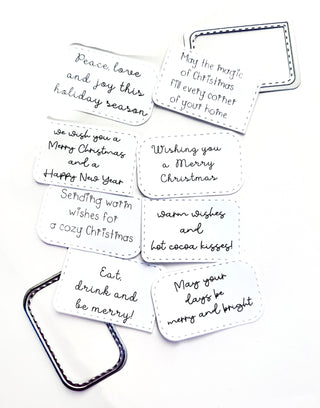 Peace, love
and joy this
holiday season
May the magic
of Christmas
fill every corner
of your home
we wish you a
Merry Christmas
and a
Happy New Year
Wishing you
a Merry
Christmas
Sending warm
wishes for
a cozy Christmas
warm wishes
and
hot cocoa kisses!
Eat,
drink and
be merry!
May your
days be
merry and bright